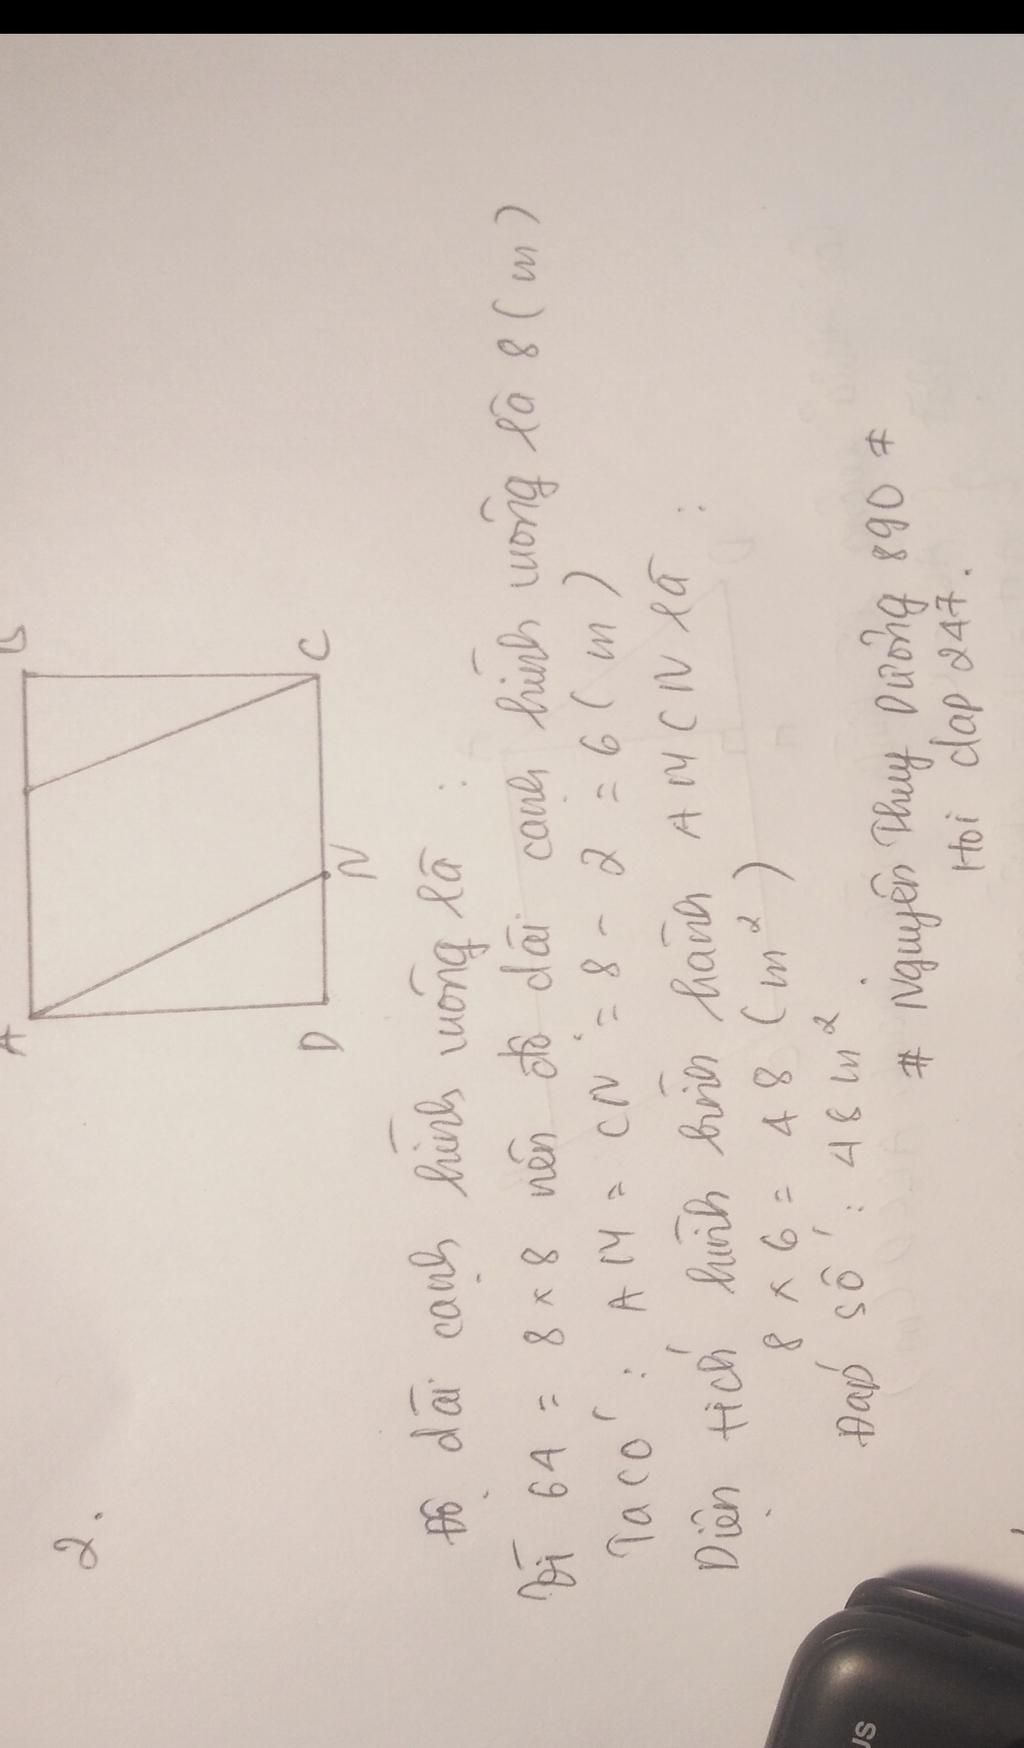 2.
A B
D N C
Độ dài cạnh hình vuông là :
Vì 64 = 8 x 8 nên độ dài cạnh hình vuông là 8 ( m )
Ta có : AM = CN = 8 - 2 = 6 ( m )
Diện tích hình bình hành AMCN là :
8 x 6 = 48 ( m²)
Đáp số : 48 m².
# Nguyễn Thuỳ Dường 890 #
Hoi dap 247.
us